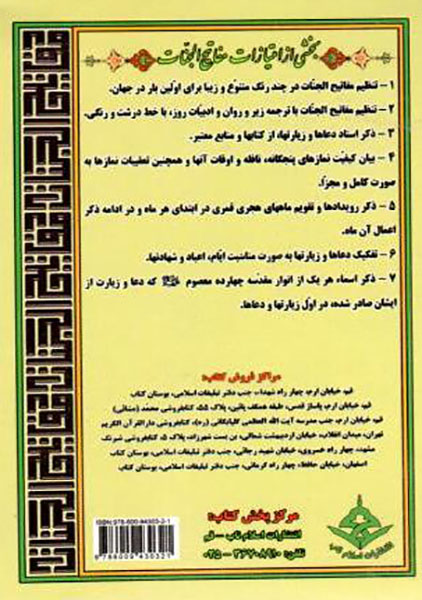 بخشی از امتیازات مفاتیح الجنات
۱ - تنظیم مفاتیح الجنات در چند رنگ متنوع و زیبا برای اولین بار در جهان.
۲ - تنظیم مفاتیح الجنات با ترجمه زیر و روان و ادبیات روز، با خط درشت و رنگی.
۳ - ذکر اسناد دعاها و زیارتها، از کتابها و منابع معتبر.
۴ - بیان کیفیّت نمازهای پنجگانه، نافله و اوقات آنها و همچنین تعقیبات نمازها به
صورت کامل و مجزّا.
۵ - ذکر رویدادها و تقویم ماههای هجری قمری در ابتدای هر ماه و در ادامه ذکر
اعمال آن ماه.
۶ - تفکیک دعاها و زیارتها به صورت مناسبت ایّام، اعیاد و شهادتها.
۷ - ذکر اسماء هر یک از انوار مقدّسه چهارده معصوم که دعا و زیارت از
ایشان صادر شده، در اوّل زیارتها و دعاها.
مراکز فروش کتاب:
قم، خیابان ارم، چهار راه شهداء، جنب دفتر تبلیغات اسلامی، بوستان کتاب
قم، خیابان ارم، پاساژ قدس، طبقه همکف پائین، پلاک ۵۵، کتابفروشی محمّد
قم، خیابان ارم، جنب مدرسه آیت الله العظمی گلپایگانی (ره)، کتابفروشی دارالقرآن الکریم
تهران، میدان انقلاب، خیابان اردیبهشت شمالی، بن بست شهرزاد، پلاک ۵، کتابفروشی
مشهد، چهار راه خسروی، خیابان شهید رجائی، جنب دفتر تبلیغات اسلامی، بوستان کتاب
اصفهان، خیابان حافظ، چهار راه کرمانی، جنب دفتر تبلیغات اسلامی، بوستان کتاب
مرکز پخش کتاب:
انتشارات اسلام ناب - قم
تلفن: ۳۶۷۰۸۹۱۰ - ۰۲۵
انتشارات اسلام
ISBN: 978-600-94503-2-1
9 786009 450321